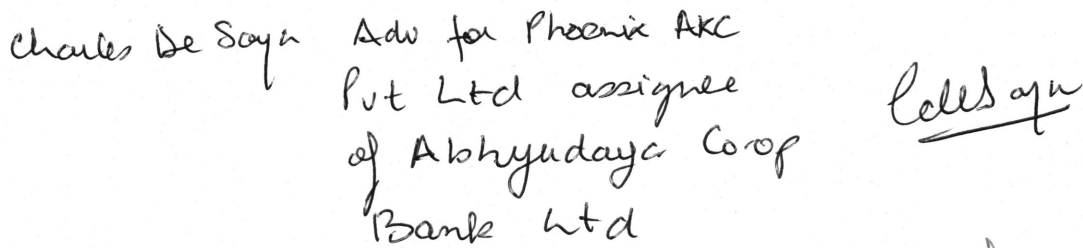 Charles De Soya Adv for Phoenix AKC
Pvt Ltd assignee
of Abhyudaya Co-op
Bank Ltd